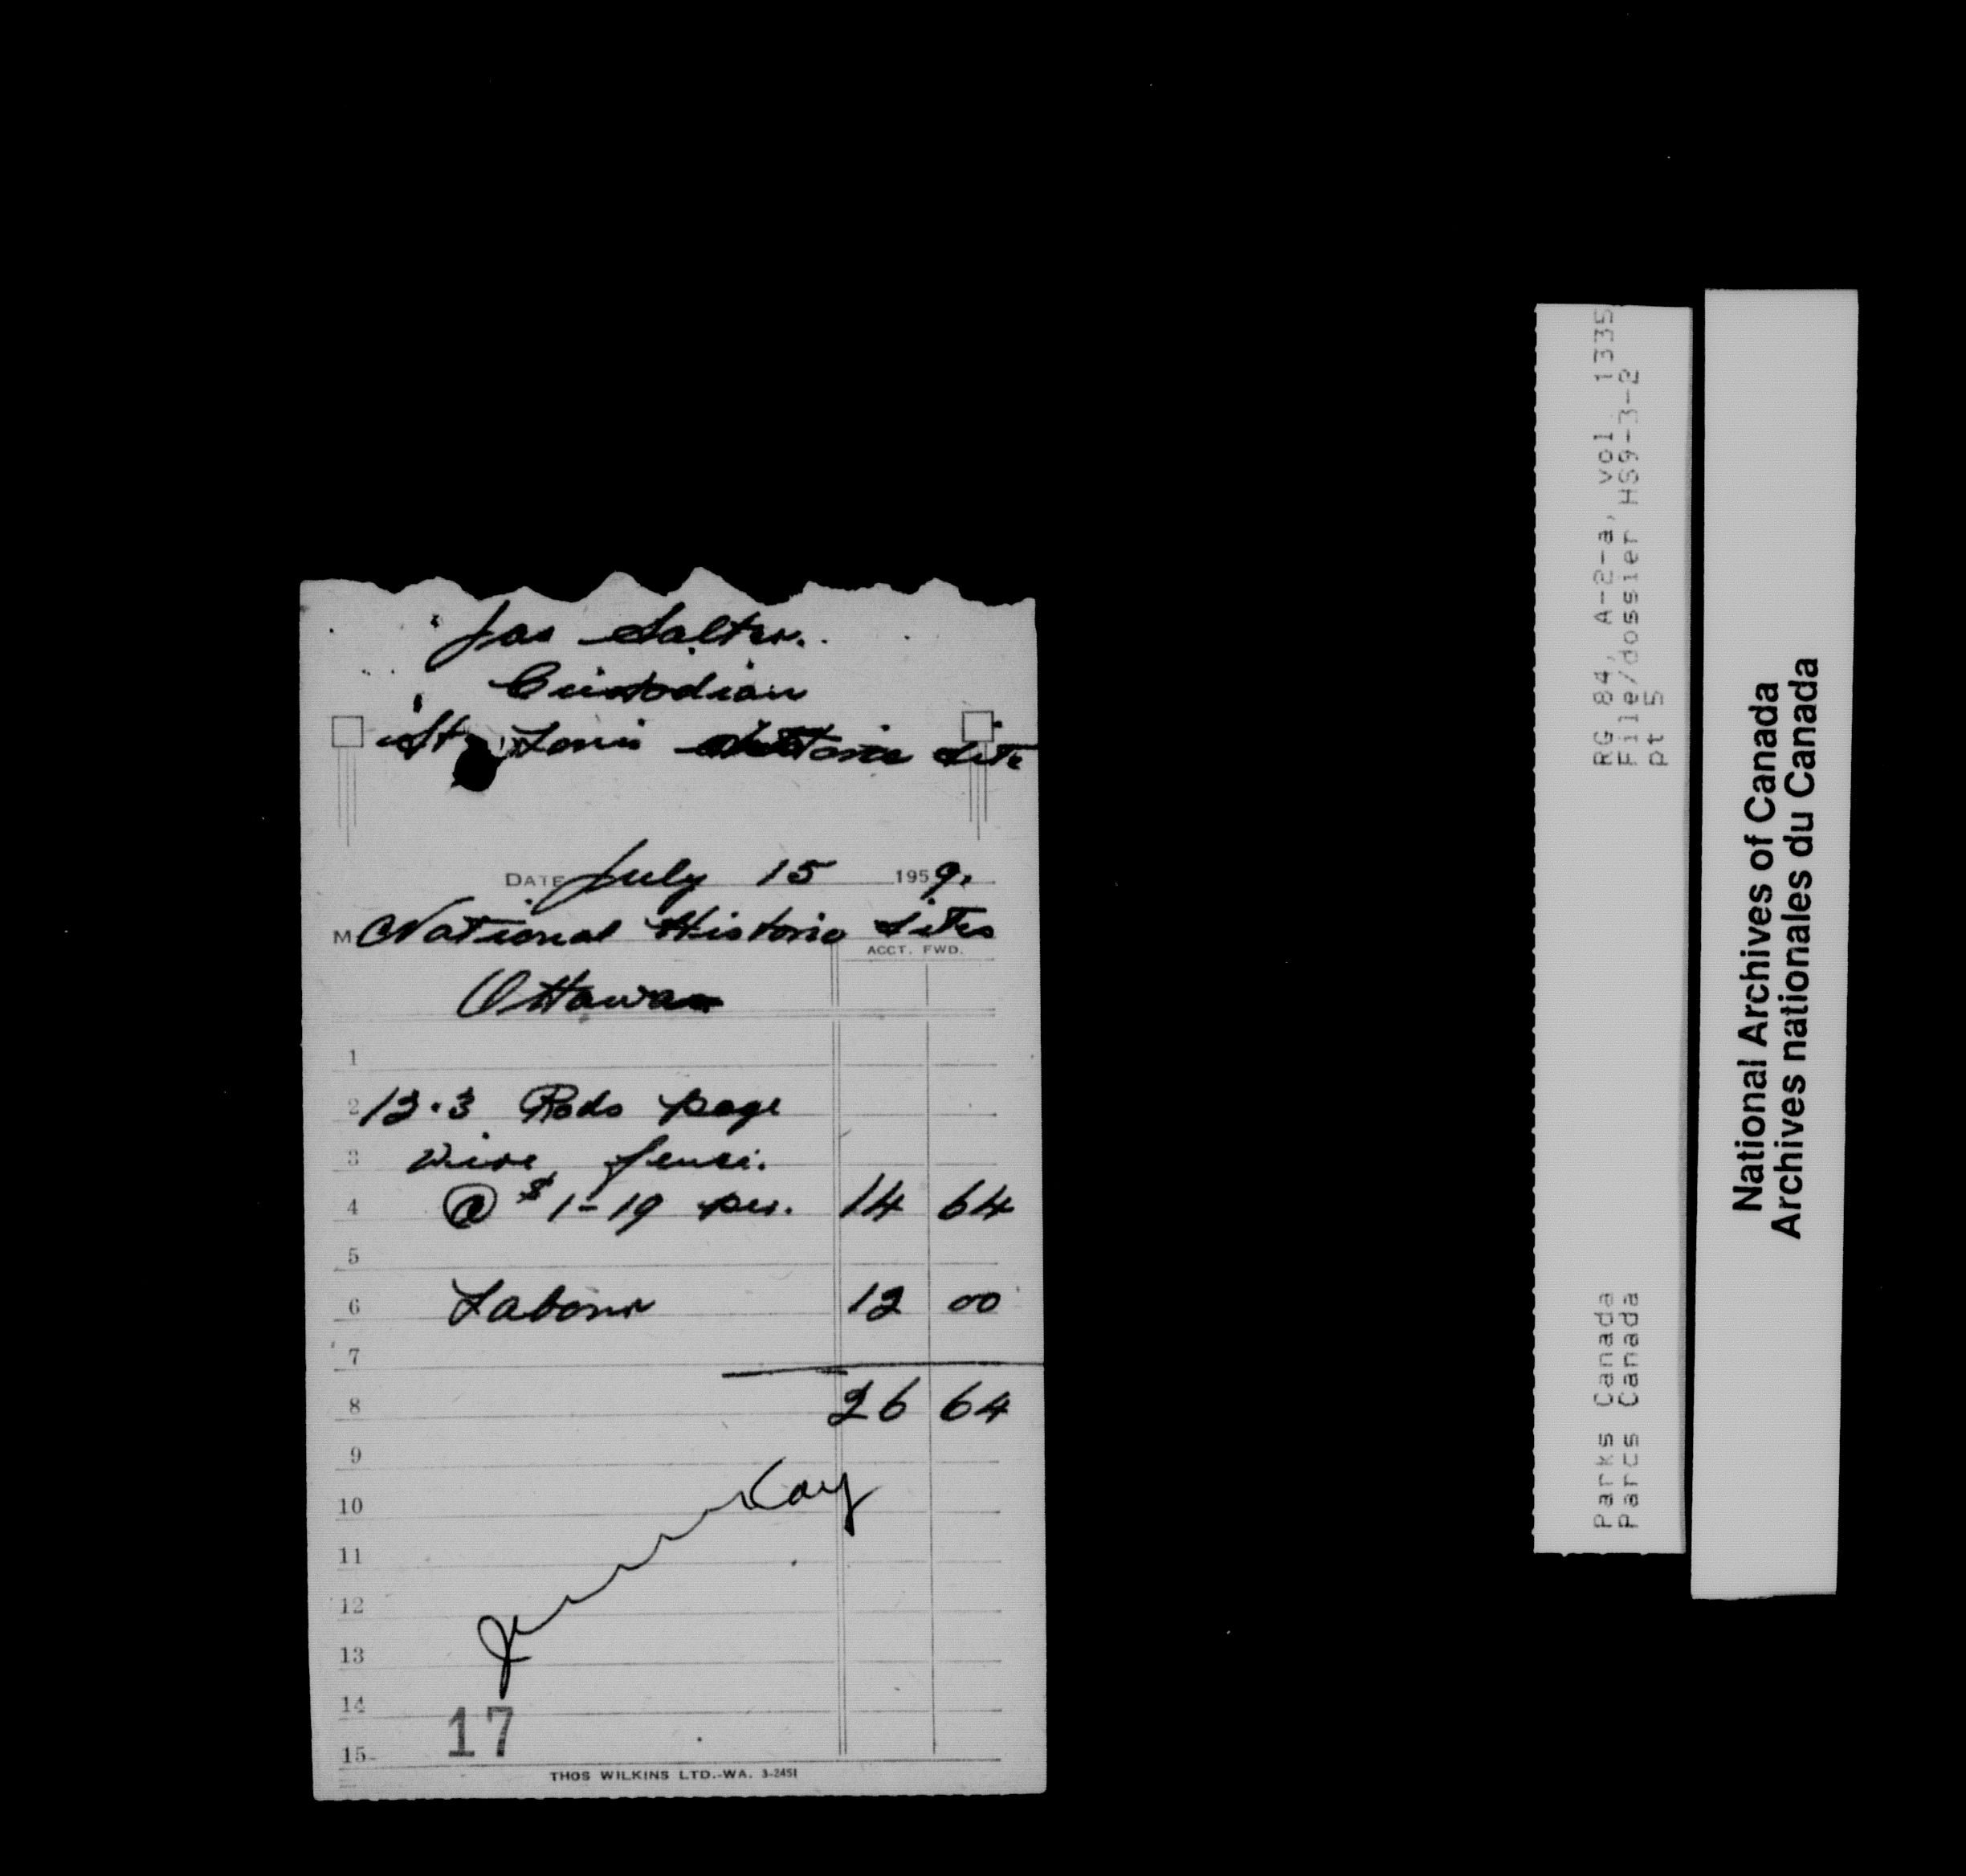 Jas Salter.
Custodian
St. Louis Historic Site
DATE July 15 1959.
M National Historic Sites
ACCT. FWD.
Ottawa
1
2 12.3 Rods page
3 wire fence.
4 @ $1-19 per. 14 64
5
6 Labour 12 00
7
8 26 64
9
10
11
12
13
14
17
15
THOS WILKINS LTD.-WA. 3-2451
RG 84, A-2-a, vol. 1335
File/dossier HS9-3-2
pt 5
Parks Canada
Parcs Canada
National Archives of Canada
Archives nationales du Canada